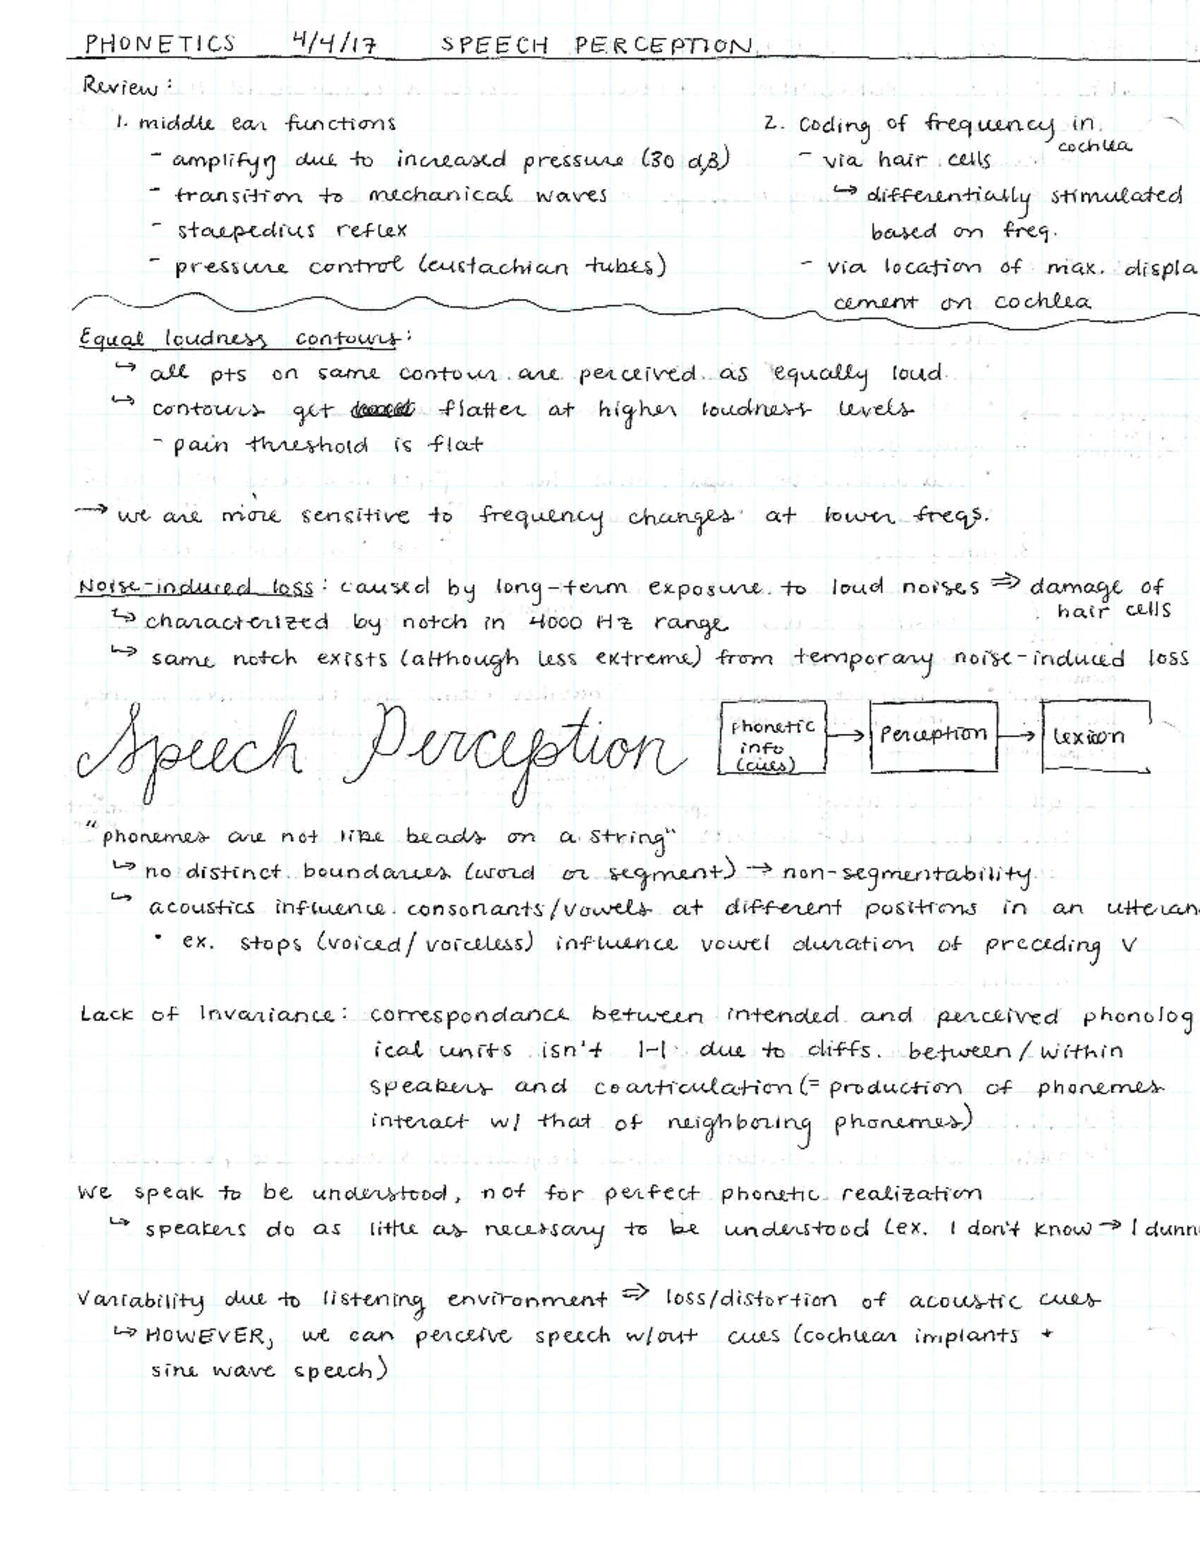 PHONETICS 4/4/17 SPEECH PERCEPTION
Review:
1. middle ear functions
- amplifyg due to increased pressure (30 dB)
- transition to mechanical waves
- staepedius reflex
- pressure control (eustachian tubes)
2. coding of frequency in
cochlea
- via hair cells
↳ differentially stimulated
based on freq.
- via location of max. displa
cement on cochlea
Equal loudness contours:
↳ all pts on same contour are perceived as equally loud
↳ contours get flatter at higher loudness levels
- pain threshold is flat
→ we are more sensitive to frequency changes at lower freqs.
Noise-induced loss: caused by long-term exposure to loud noises ⇒ damage of
hair cells
↳ characterized by notch in 4000 Hz range
↳ same notch exists (although less extreme) from temporary noise-induced loss
Speech Perception
phonetic
info
(cues)
→ Perception → Lexicon
"phonemes are not like beads on a string"
↳ no distinct boundaries (word or segment) → non-segmentability
↳ acoustics influence consonants/vowels at different positions in an utteran
• ex. stops (voiced/voiceless) influence vowel duration of preceding V
Lack of Invariance: correspondance between intended and perceived phonolog
ical units isn't 1-1 due to diffs. between/within
speakers and coarticulation (= production of phonemes
interact w/ that of neighboring phonemes)
We speak to be understood, not for perfect phonetic realization
↳ speakers do as little as necessary to be understood (ex. I don't know → I dunn
Variability due to listening environment ⇒ loss/distortion of acoustic cues
↳ HOWEVER, we can perceive speech w/out cues (cochlear implants +
sine wave speech)